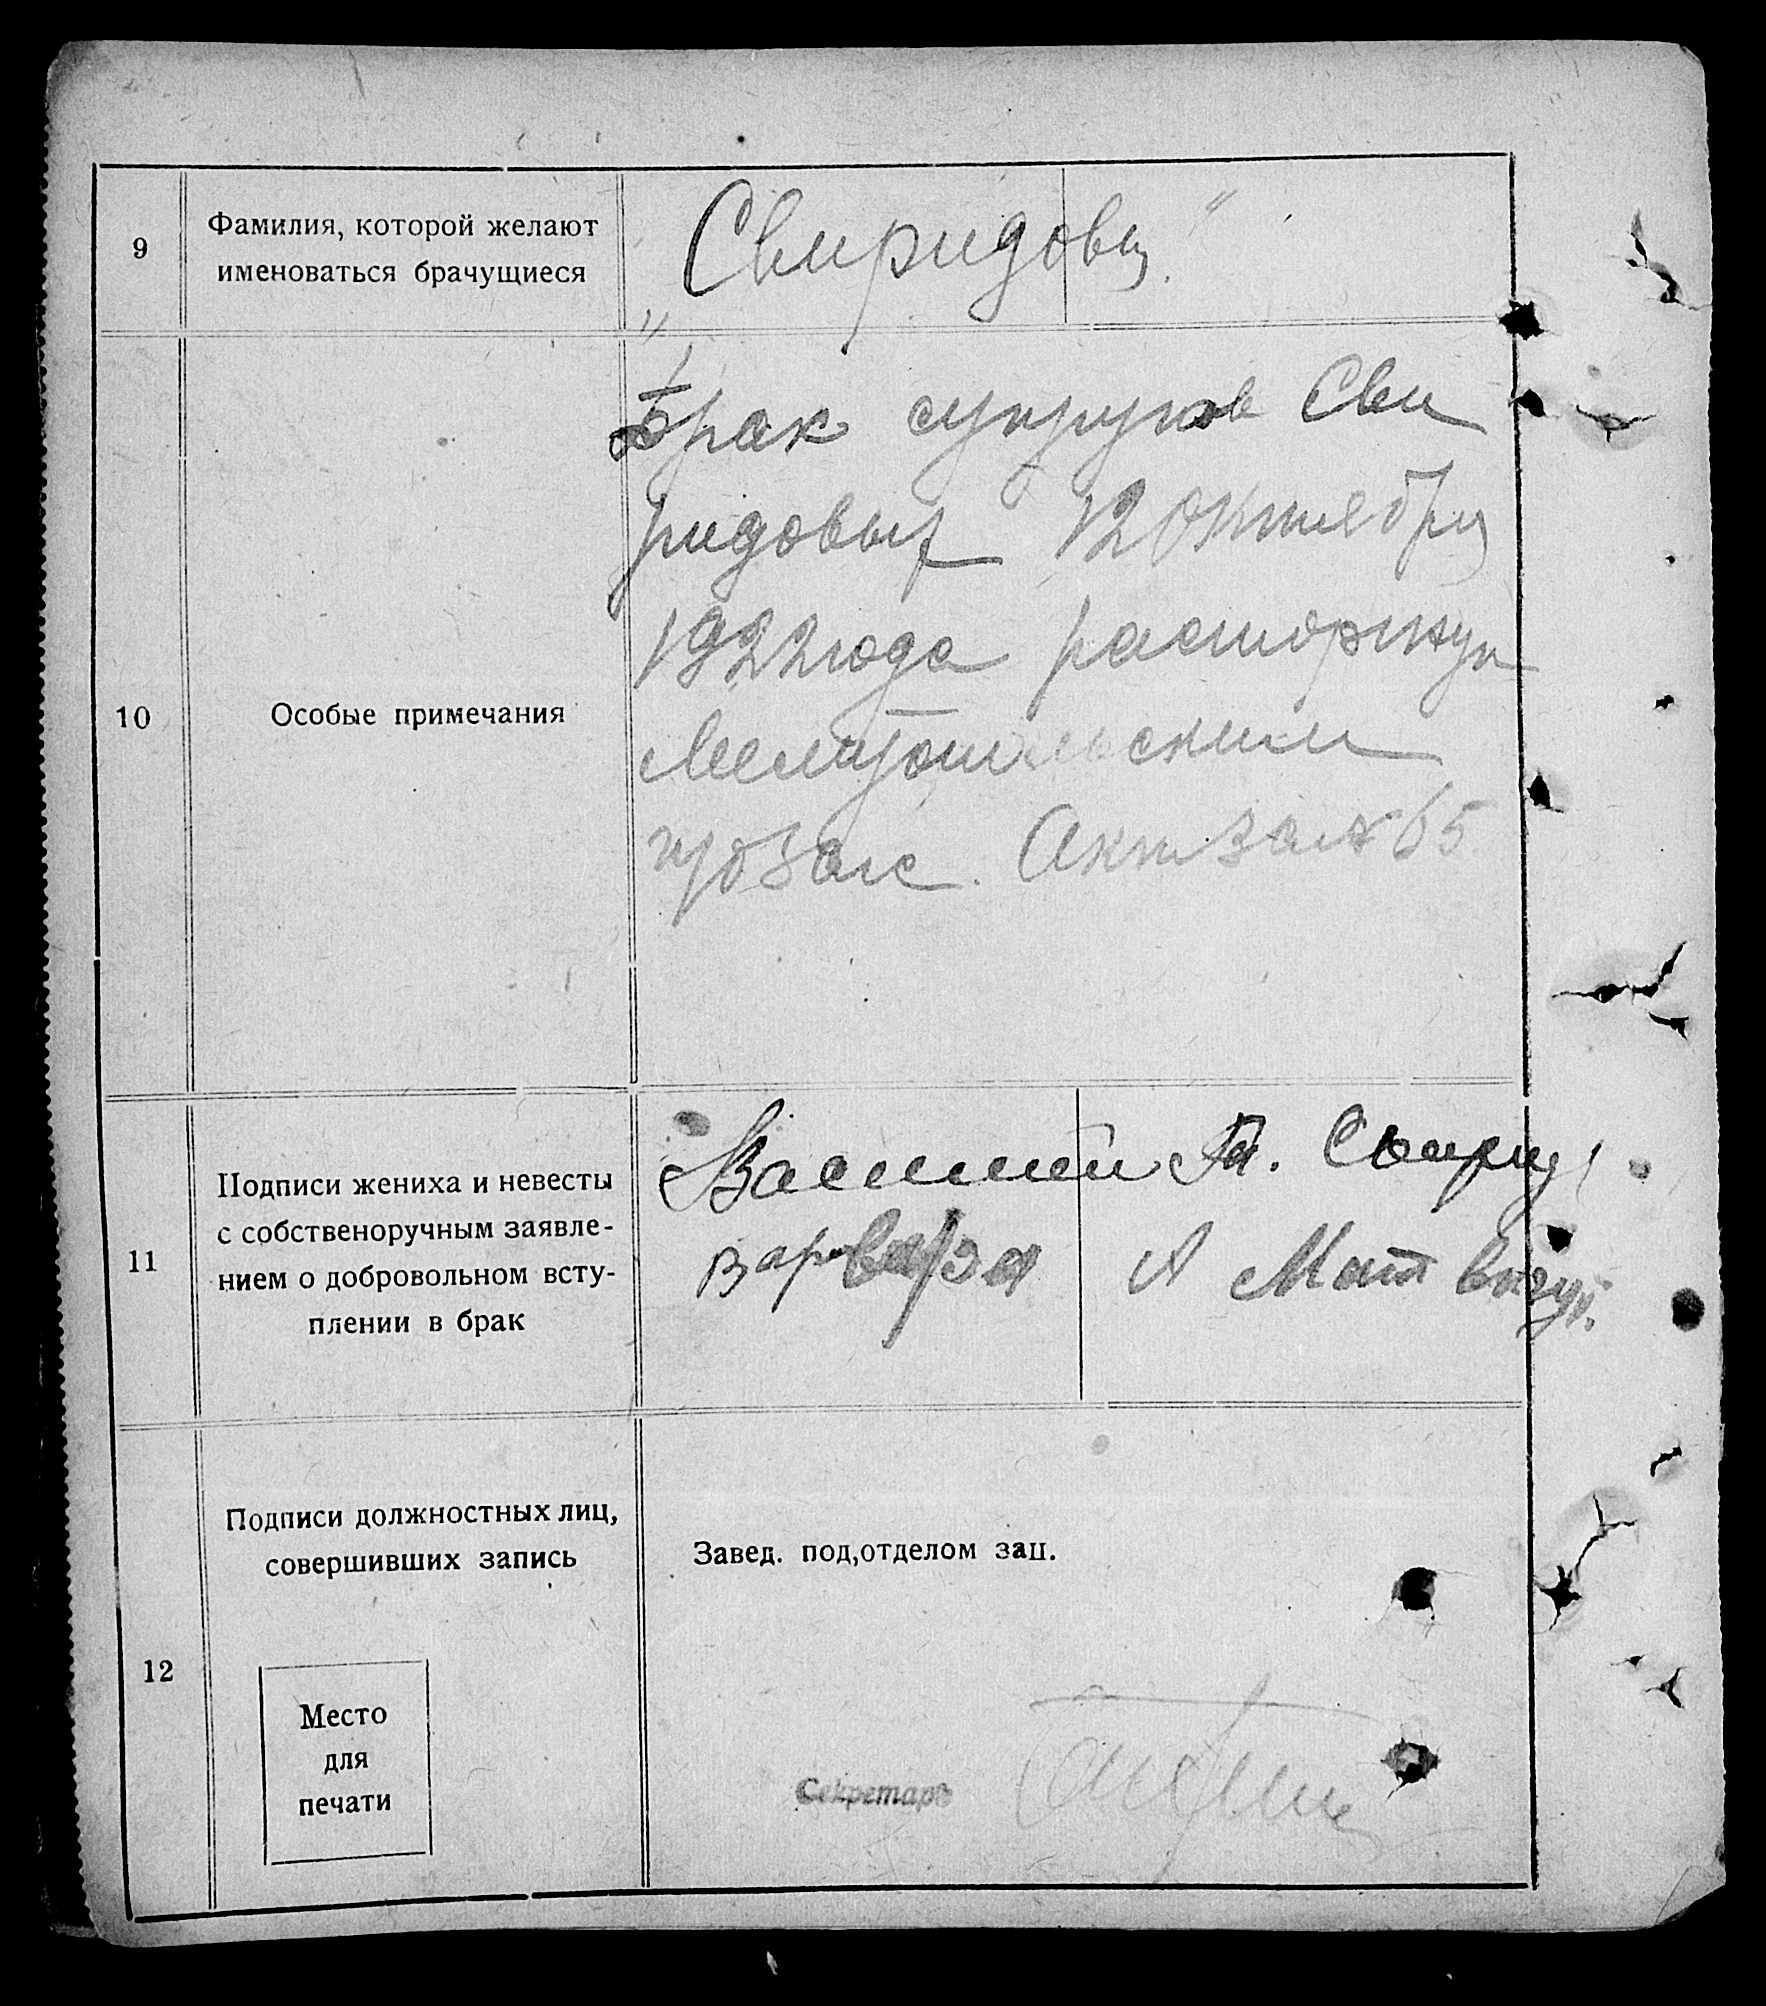 9
Фамилия, которой желают
именоваться брачущиеся
„Свиридовы"
10
Особые примечания
Брак супругов Сви
ридовых 12 октября
1922 года расторжен
Мелитопольским
Акт
65
11
Подписи жениха и невесты
с собственоручным заявле-
нием о добровольном всту-
плении в брак
Василий П. Свирид
Варвара А
12
Подписи должностных лиц,
совершивших запись
Место
для
печати
Завед. под,отделом зап.
Секретарь